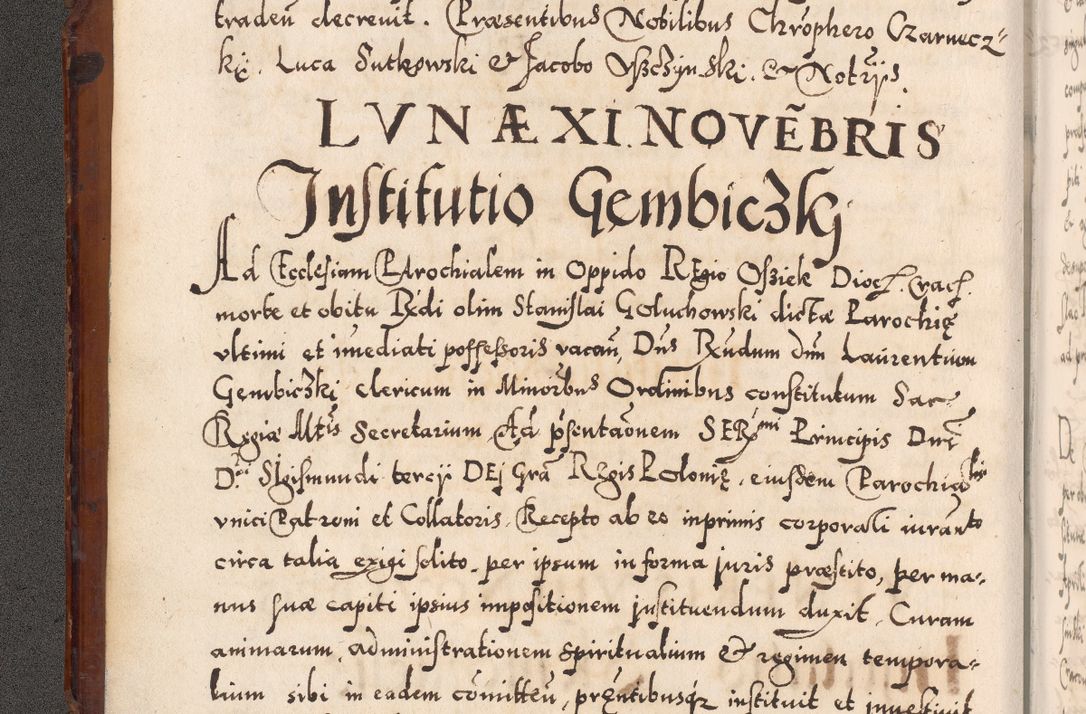 tradeñ decrevit. Præsentibus Nobilibus Chrophero Czarnecz-
kj. Luca Sutkowski & Jacobo Uszczynski. & Notrijs.
LVNÆ XI. NOVẼBRIS
Institutio Gembiczkj
Ad Ecclesiam Parochialem in Oppido Regio Osziek Dioc. Crac.
morte et obitu Rdi olim Stanislai Goluchowski dictæ Parochię
vltimi et imediati possessoris vacañ, Dñs Rñdum dñm Laurentium
Gembiczkj clericum in Minoribus Ordinibus constitutum Sac.
Regiæ Mtis Secretarium Ad p̃sentãonem SERmi Principis Dnĩ
D. Sigismundi tercij DEj Grã Regis Polonię, eiusdem Parochia
vnici Patroni et Collatoris. Recepto ab eo inprimis corporali iuranto
circa talia exigi solito, per ipsum in forma juris præstito, per ma-
nus suæ capiti ipsius impositionem justituendum duxit. Curam
animarum, administrationem spiritualium & regimen tempora-
lium sibi in eadem cõmitteñ, pręntibusqz instituit et investivit